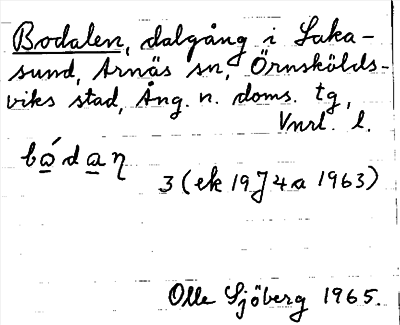 Bodalen, dalgång i Saka-
sund, Arnäs sn, Örnskölds-
viks stad, Ång. n. doms. tg,
Vnrl. l.
bó̲da̲ŋ
3 (ek 19J4a 1963)
Olle Sjöberg 1965.